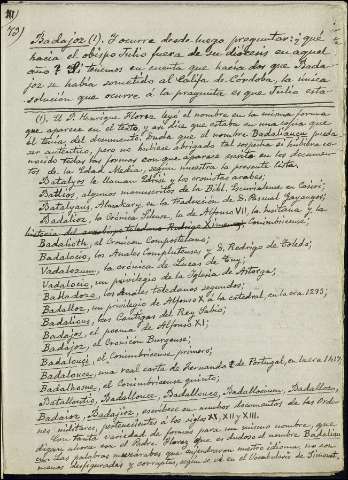 Badajoz (1). Y ocurre desde luego preguntar: ¿qué
hacía el obispo Julio fuera de su diócesis en aquel
año? Si tenemos en cuenta que hacía dos que Bada-
joz se había sometido al Califa de Córdoba, la única
solución que ocurre á la pregunta es que Julio esta-
(1). El P. Henrique Florez leyó el nombre en la misma forma
que aparece en el texto, y así dice que estaba en una copia que
él tenía del documento. Duda que el nombre Badaliaucu pueda
ser auténtico, pero no hubiese abrigado tal sospecha si hubiera co-
nocido todas las formas con que aparece escrito en los documen-
tos de la Edad Media, según muestra la presente lista:
Batalyos le llaman y los cronistas árabes;
Badlios, algunos manuscritos de la Bibl. Escurialense en Casiri;
Batalyaus, Almakary, en la traducción de D. Pascual Gayangos;
Badalioz, la Crónica Silense, la de Alfonso VII, la lusitana y la
historia del Conimbricense;
Badalioth, el Cronicon Compostelano;
Badalocio, los Anales Complutenses y D. Rodrigo de Toledo;
Vadalozum, la crónica de Lucas de Tuy;
Vadalocio, un privilegio de la Iglesia de Astorga;
Balladoze, los Anales toledanos segundos;
Badalloz, un privilegio de Alfonso X á la catedral, en la era 1293;
Badalious, las Cantigas del Rey Sabio;
Badajos, el poema de Alfonso XI;
Badajoz, el Cronicón Burgense;
Badalouci, el Conimbricense primero;
Badalouce, una real carta de Fernando de Portugal, en la era 1417;
Badalhouse, el Conimbricense quinto;
Batallautio, Badallouce, Badallouco, Badalloucum, Badalloz,
Badaioz, Badajioz, escríbese en muchos documentos de las Orde-
nes militares, pertenecientes á los siglos XI, XII y XIII.
Con tanta variedad de formas para un mismo nombre, que
digan ahora con el Padre Florez que es dudoso el nombre Badaliau
cu; las palabras mozárabes que engendraron nuestro idioma, no son
menos desfiguradas y corruptas, según se ve en el Vocabulario de Simonet.